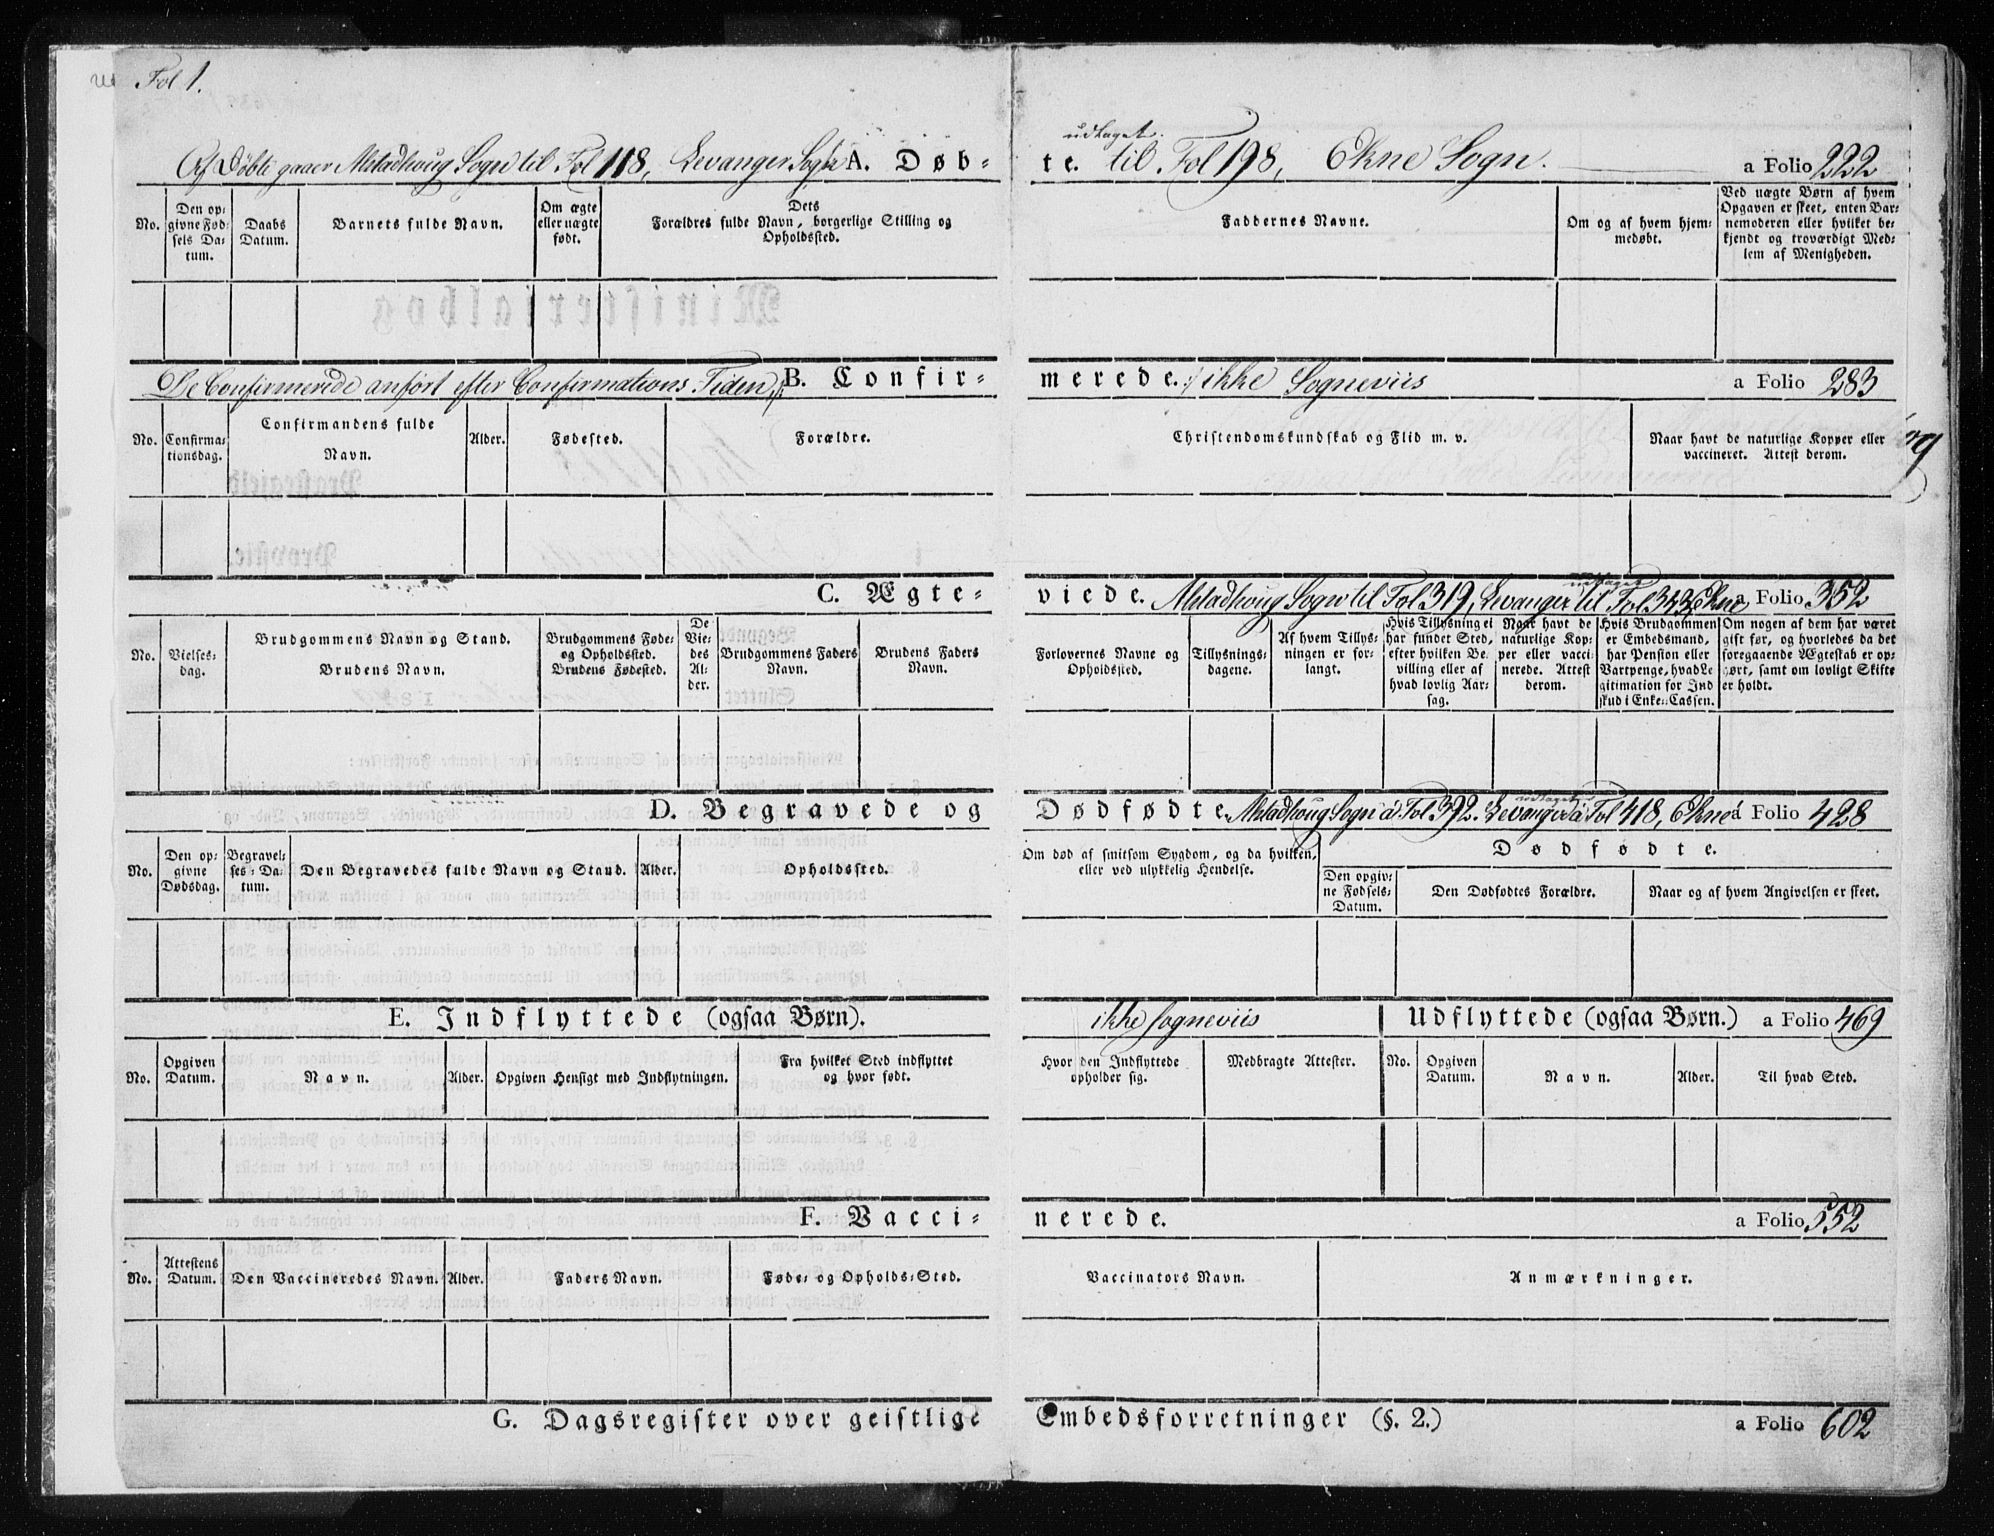 Fol 1.
Af Døbte gaaer Alstadhoug Sogn til Fol 118, Levanger Sogn A. Døb-
udtaget
te. til Fol 198, Ekne Sogn. a Folio 222
No.
Den op-
givne Fød-
sels Da-
tum.
Daabs
Datum.
Barnets fulde Navn.
Om ægte
eller uægte
født.
Dets
Forældres fulde Navn, borgerlige Stilling og
Opholdssted.
Faddernes Navne.
Om og af hvem hjem-
medøbt.
Ved uægte Børn af hvem
Opgaven er skeet, enten Bar-
nemoderen eller hvilket be-
kjendt og troværdigt Med-
lem af Menigheden.
De Confirmerede anført efter Confirmations Tiden, B. Confir-
merede. ikke Sogneviis a Folio 283
No.
Confirma-
tionsdag.
Confirmandens fulde
Navn.
Alder.
Fødested.
Forældre.
Christendomskundskab og Flid m. v.
Naar havt de naturlige Kopper eller
vaccineret. Attest derom.
C. Ægte-
udtaget
viede. Alstadhoug Sogn til Fol 319, Levanger til Fol 343 Ekne a Folio 352
No.
Vielses-
dag.
Brudgommens Navn og Stand.
Brudens Navn.
Brudgommens Føde-
og Opholdssted.
Brudens Fødested.
De
Vie-
des
Al-
der.
Brudgommens Faders
Navn.
Brudens Faders
Navn.
Forlovernes Navne og
Opholdssted.
Tillysnings-
dagene.
Af hvem Tillys-
ningen er for-
langt.
Hvis Tillysning ei
har fundet Sted,
efter hvilken Be-
villing eller af
hvad lovlig Aar-
sag.
Naar havt de
naturlige Kop-
per eller vacci-
nerede. Attest
derom.
Hvis Brudgommen
er Embedsmand,
har Pension eller
Vartpenge, hvad Le
gitimation for Ind
skud i Enke-Cassen.
Om nogen af dem har været
gift før, og hvorledes da det
foregaaende Ægtestab er op-
gjørt, samt om lovligt Skifte
er holdt.
D. Begravede og
udtaget
Dødfødte. Alstadhoug Sogn á Fol 392. Levanger á Fol 418, Ekne á Folio 428
No.
Den op-
givne
Dødsdag.
Begravel-
ses-Da-
tum.
Den Begravedes fulde Navn og Stand.
Alder.
Opholdssted.
Om død af smitsom Sygdom, og da hvilken,
eller ved ulykkelig Hendelse.
Dødfødte.
Den opgiv-
ne Fødsels-
Datum.
Den Dødfødtes Forældre.
Naar og af hvem Angivelsen er skeet.
E. Indflyttede (ogsaa Børn).
ikke sogneviis
Udflyttede (ogsaa Børn.) a Folio 469
No.
Opgiven
Datum.
Navn.
Alder.
Opgiven Hensigt med Indflytningen.
Fra hvilket Sted indflyttet
og hvor født.
Hvor den Indflyttede
opholder sig.
Medbragte Attester.
No.
Opgiven
Datum.
Navn.
Alder.
Til hvad Sted.
F. Vacci-
nerede. a Folio 552
No.
Attestens
Datum.
Den Vaccineredes Navn.
Alder.
Faders Navn.
Føde- og Opholds-Sted.
Vaccinators Navn.
Anmærkninger.
G. Dagsregister over geistlige
Embedsforretninger (§. 2.) a Folio 602